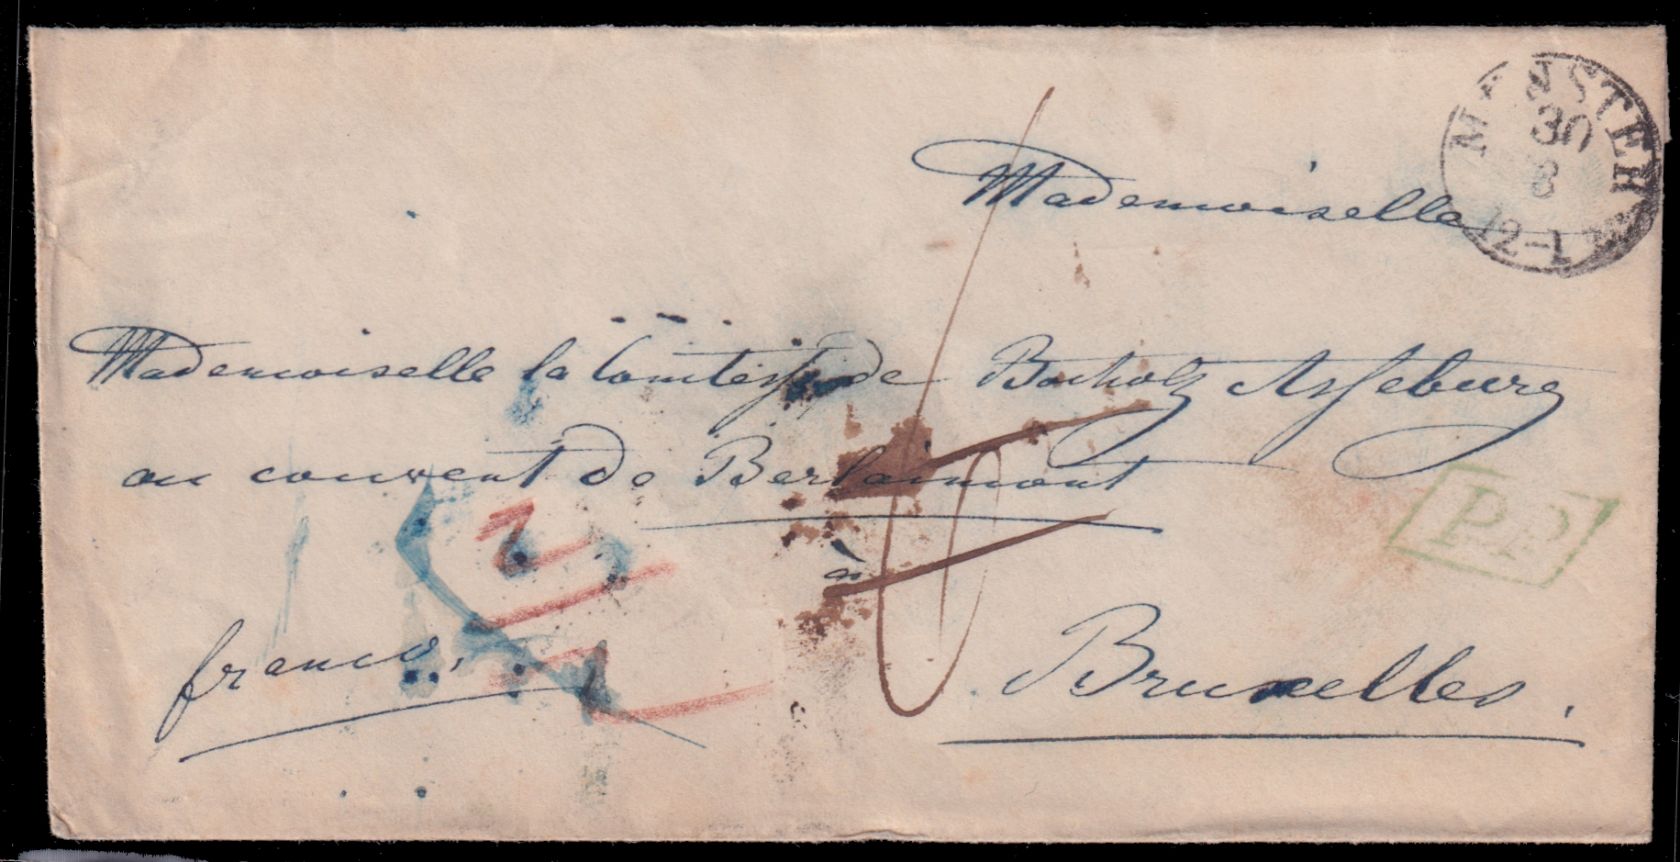 MÜNSTER
30
8
12-1
Mademoiselle
Mademoiselle la Comtesse de Bocholtz Asseburg
au couvent de Berlaimont
P.P.
à
franco.
Bruxelles.